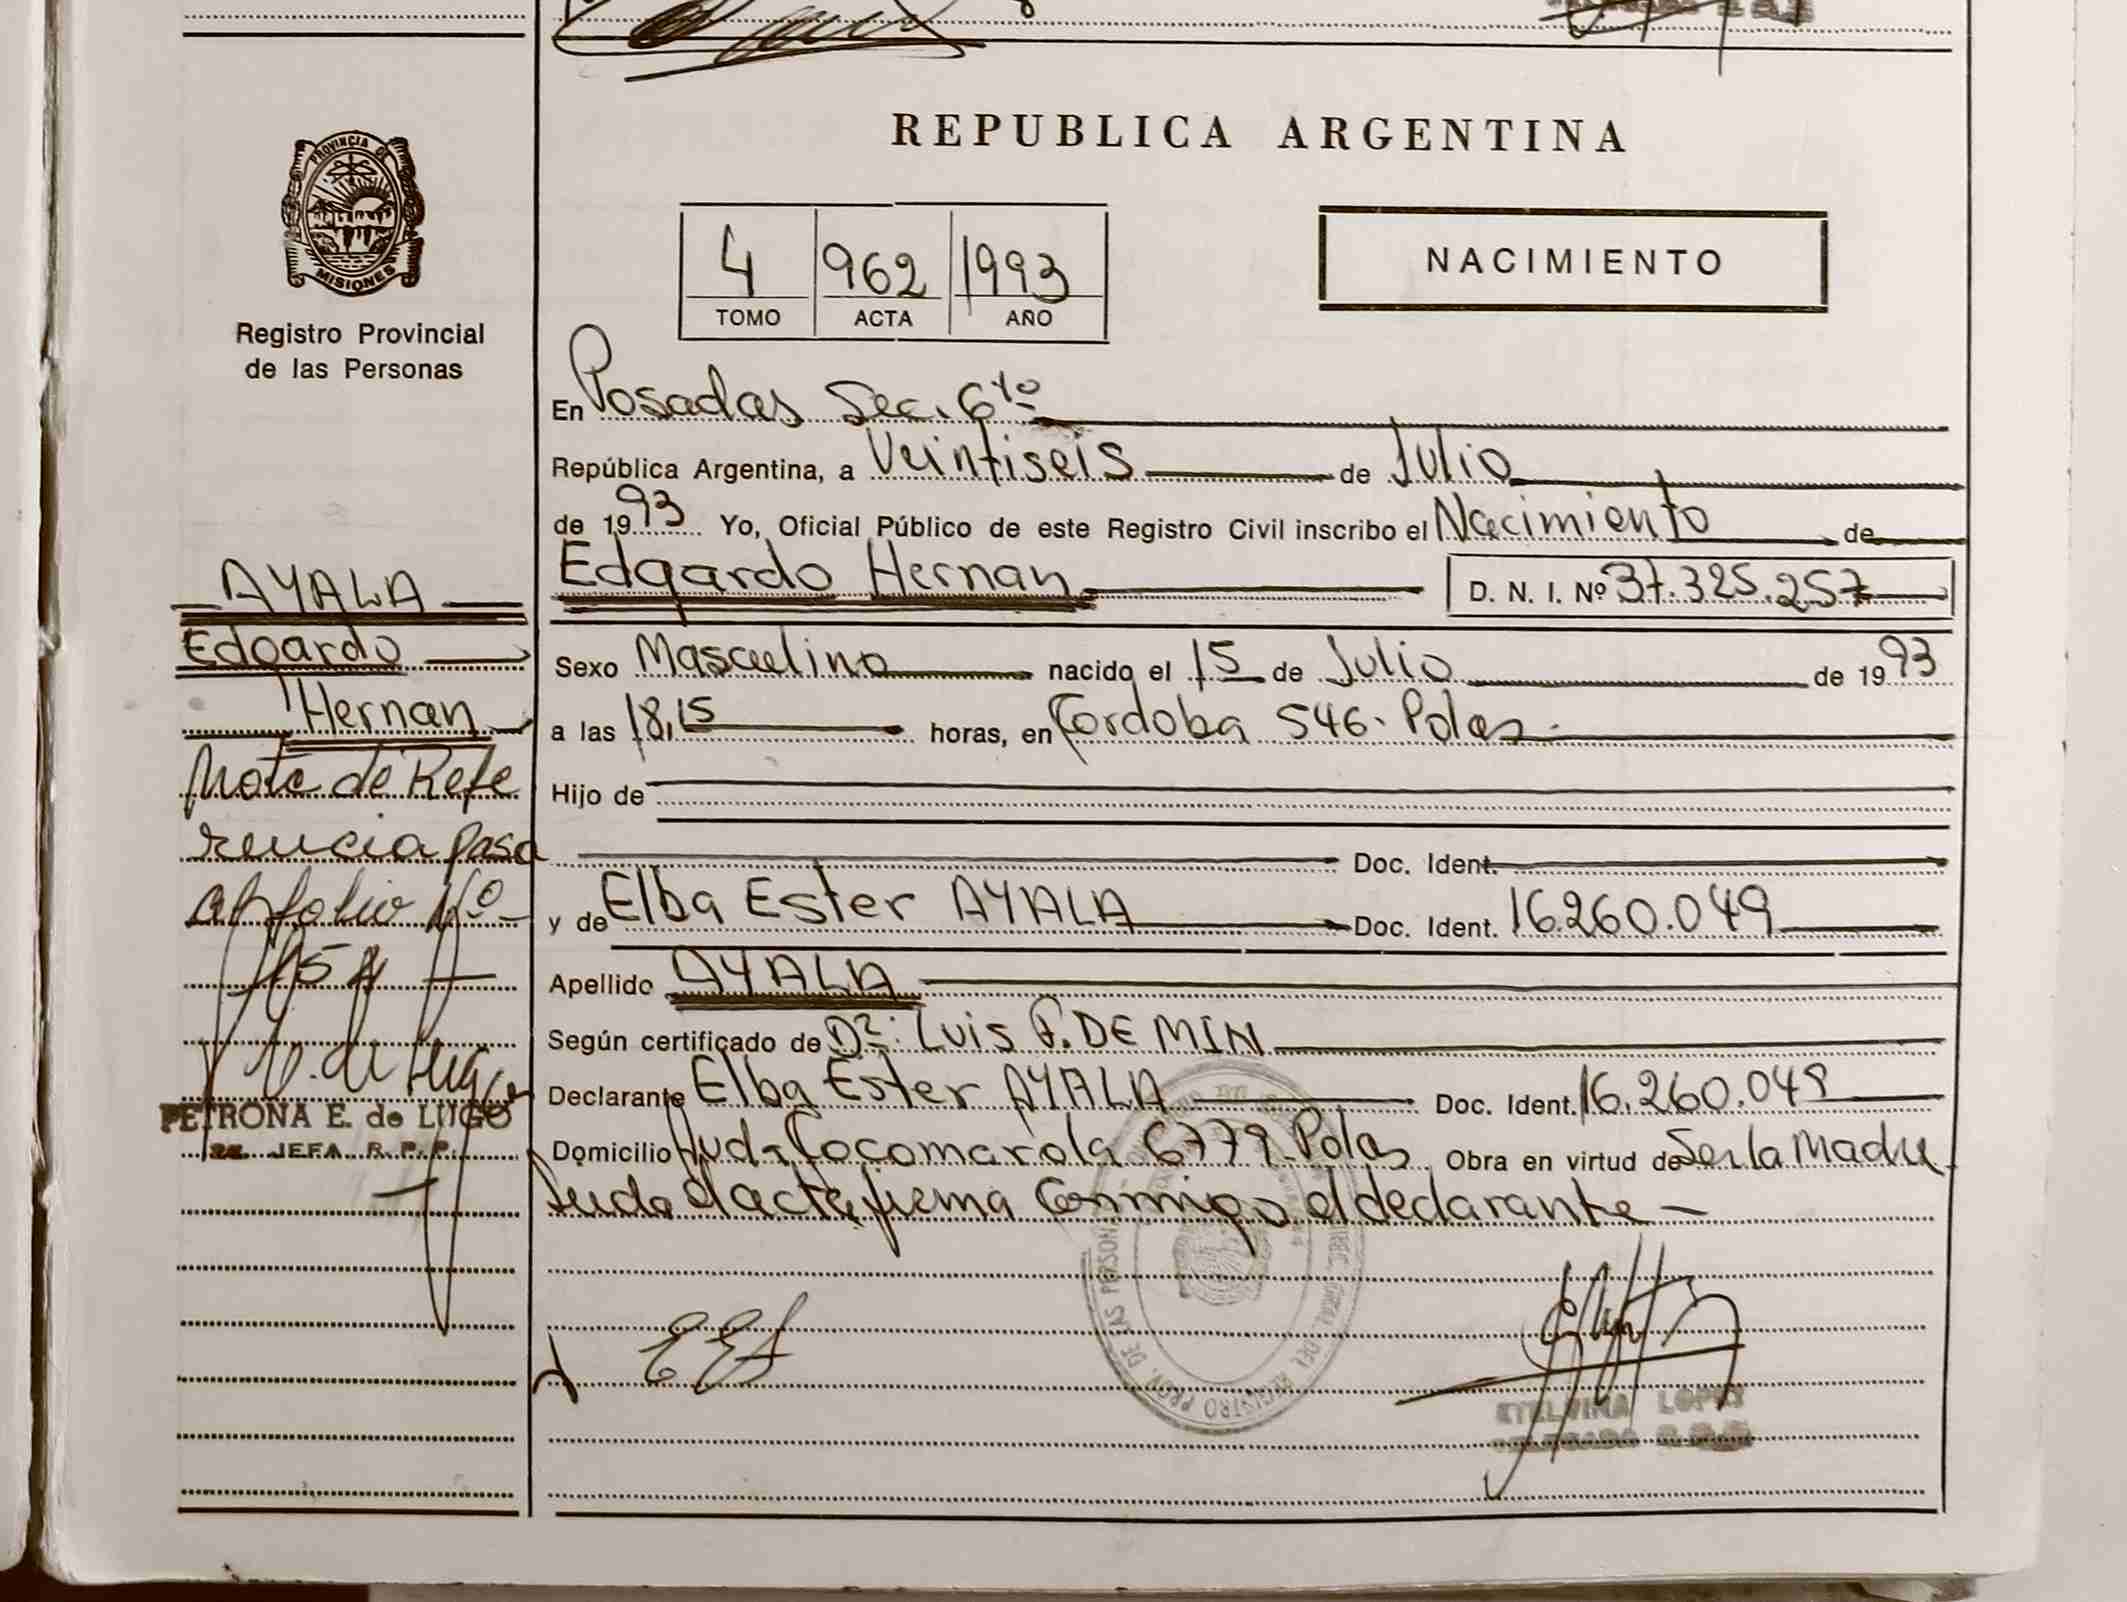 PROVINCIA DE
MISIONES
Registro Provincial
de las Personas
REPUBLICA ARGENTINA
4 962 1993
TOMO ACTA AÑO
NACIMIENTO
En Posadas Sec. 6to
República Argentina, a Veintiseis de Julio
de 1993 Yo, Oficial Público de este Registro Civil inscribo el Nacimiento de
Edgardo Hernan D. N. I. Nº 37.325.257
Sexo Masculino nacido el 15 de Julio de 1993
a las 18,15 horas, en Cordoba 546. Pdas.
Hijo de
Doc. Ident.
y de Elba Ester AYALA Doc. Ident. 16.260.049
Apellido AYALA
Según certificado de Dr. Luis DE MIN
Declarante Elba Ester AYALA Doc. Ident. 16.260.049
Domicilio Cocomarola 6779 Pdas Obra en virtud de Ser la Madre
Leida el acta, firma Conmigo el declarante
EEA
ETELVINA LOPEZ
DELEGADO
AYALA
Edgardo
Hernan
Nota de Refe
rencia pasa
al folio Nº
PETRONA E. de LUGO
JEFA R. P. P.